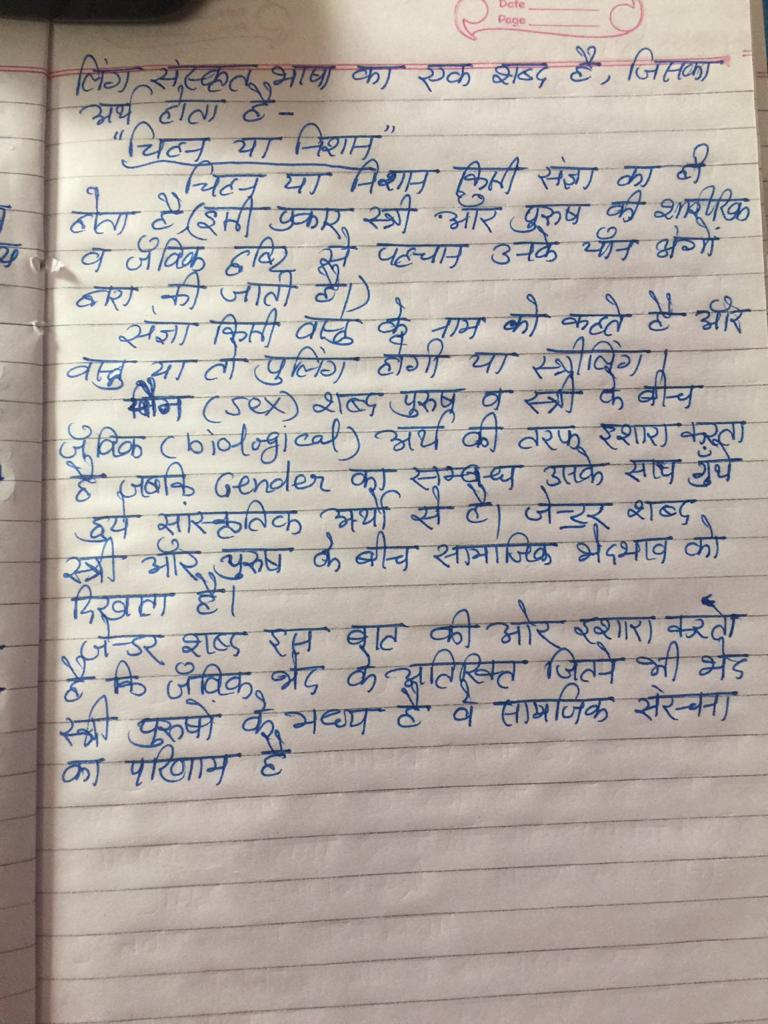 Date
Page
लिंग संस्कृत भाषा का एक शब्द है, जिसका
अर्थ होता है -
"चिह्न या निशान"
चिह्न या निशान किसी संज्ञा का ही
होता है (इसी प्रकार स्त्री और पुरुष की शारीरिक
व जैविक दृष्टि से पहचान उनके यौन अंगों
द्वारा की जाती है।)
संज्ञा किसी वस्तु के नाम को कहते है और
वस्तु या तो पुलिंग होगी या स्त्रीलिंग।
यौन (sex) शब्द पुरुष व स्त्री के बीच
जैविक (biological) अर्थ की तरफ इशारा करता
है जबकि Gender का सम्बन्ध उसके साथ गुँथे
हुये सांस्कृतिक अर्थों से है। जेन्डर शब्द
स्त्री और पुरुष के बीच सामाजिक भेदभाव को
दिखाता है।
जेन्डर शब्द इस बात की ओर इशारा करता
है कि जैविक भेद के अतिरिक्त जितने भी भेद
स्त्री पुरुषों के मध्य है वे सामाजिक संरचना
का परिणाम है